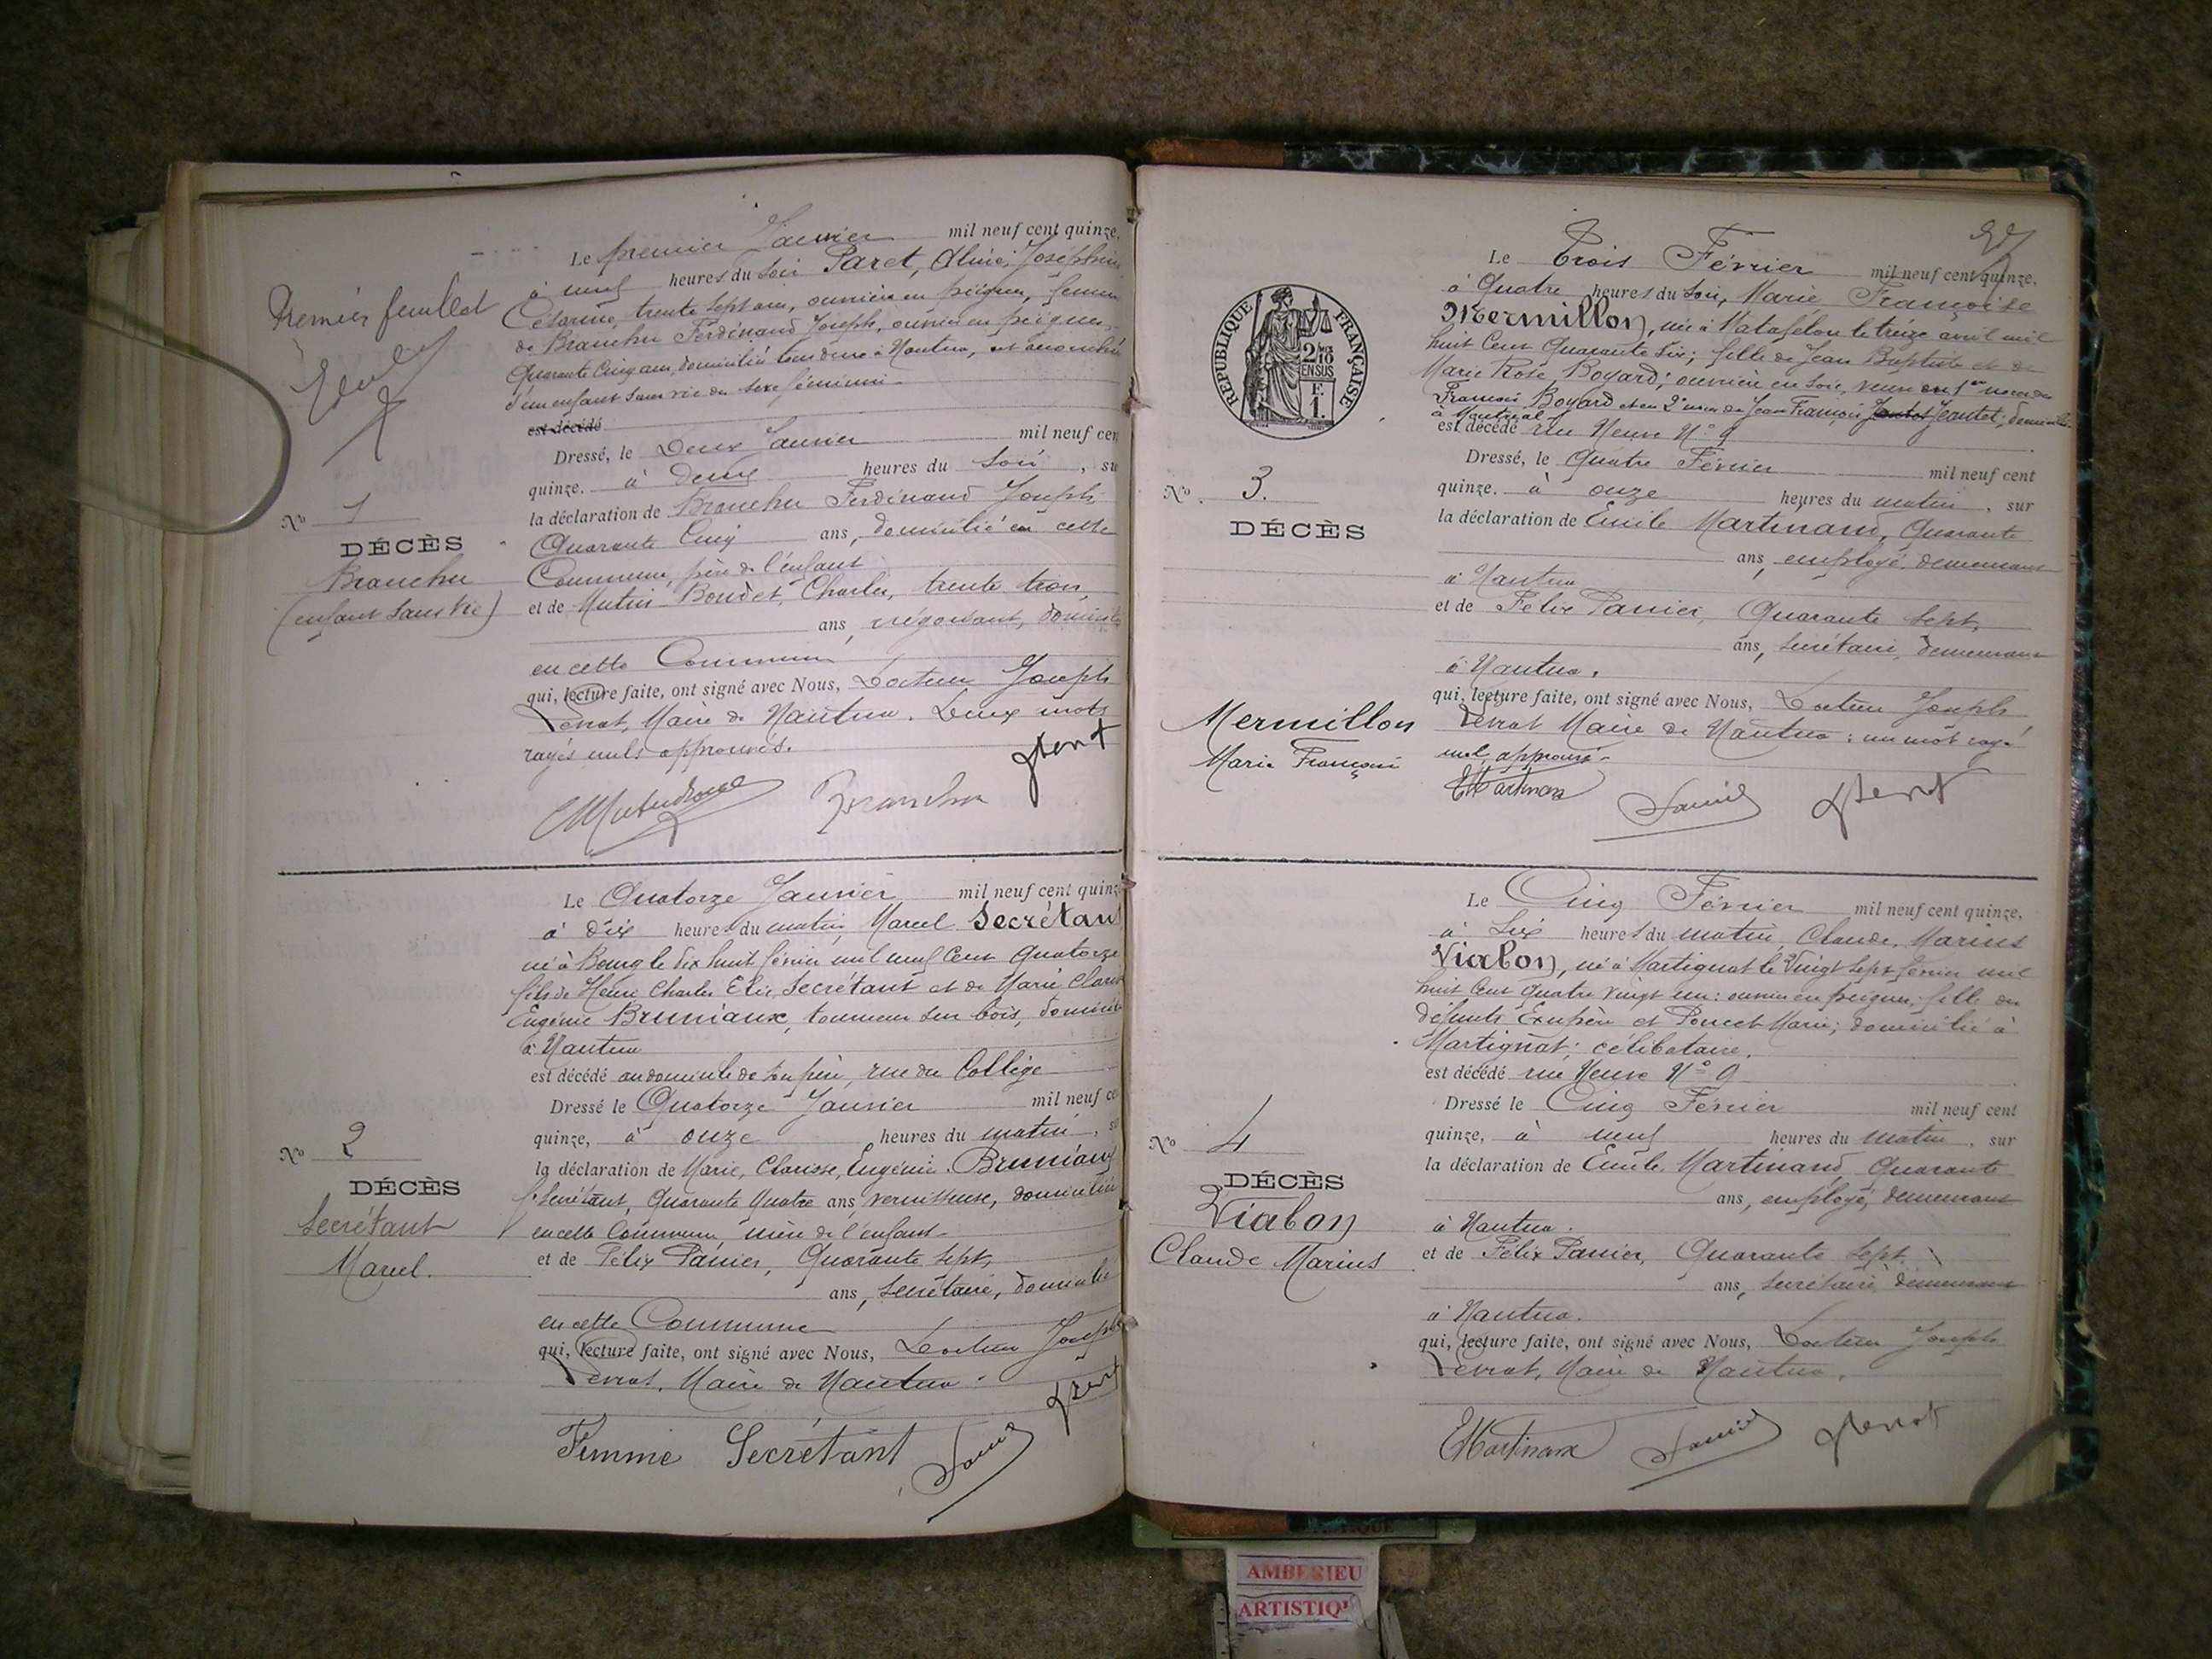 Premier feuillet
Le premier Janvier mil neuf cent quinze,
à neuf heures du soir Paret, Aline, Joséphine
Césarine, trente sept ans, ouvrière en peignes, femme
de Branchu Ferdinand Joseph, ouvrier en peignes,
Quarante Cinq ans, domiciliés tous deux à Nantua, est accouchée
d'un enfant sans vie du sexe féminin
est décédé
Dressé, le Deux Janvier mil neuf cen
quinze. à deux heures du soir, su
la déclaration de Branchu Ferdinand Joseph
Quarante Cinq ans, domicilié en cette
Commune, père de l'enfant
et de Mutin Boudet, Charles, trente trois,
ans, négociant, domicilié
en cette Commune
qui, lecture faite, ont signé avec Nous, Docteur Joseph
Levrat, Maire de Nantua. Deux mots
rayés nuls approuvés.
No 1
DÉCÈS
Branchu
(enfant sans vie)
Branchu
Le Quatorze Janvier mil neuf cent quinz
à dix heures du matin, Marcel Secrétant
né à Bourg le dix huit février mil neuf Cent Quatorze
fils de Henri Charles Elie, Secrétant et de Marie Clarisse
Eugénie Bruniaux, tourneur sur bois, domicilié
à Nantua
est décédé au domicile de son père, rue du Collège
Dressé le Quatorze Janvier mil neuf ce
quinze, à onze heures du matin, su
la déclaration de Marie, Clarisse, Eugénie Bruniaux
fe Secrétant, Quarante Quatre ans, vernisseuse, domiciliée
en cette Commune, mère de l'enfant
et de Félix Panier, Quarante sept,
ans, secrétaire, domicilié
en cette Commune
qui, lecture faite, ont signé avec Nous, Docteur Joseph
Levrat, Maire de Nantua.
No 2
DÉCÈS
Secrétant
Marcel.
Femme Secrétant
REPUBLIQUE FRANÇAISE
2/10
EN SUS
F.
1.
Le Trois Février mil neuf cent quinze,
à Quatre heures du soir, Marie Françoise
Mermillon, née à Matafelon le treize avril mil
huit Cent Quarante Six; fille de Jean Baptiste et de
Marie Rose Boyard; ouvrière en soie, veuve en 1res noces de
François Boyard et en 2e noces de Jean François Jeantet; domiciliée
à Montréal
est décédé rue Neuve No 9
Dressé, le Quatre Février mil neuf cent
quinze. à onze heures du matin, sur
la déclaration de Emile Martinand, Quarante
ans, employé, demeurant
à Nantua
et de Félix Panier, Quarante sept,
ans, secrétaire, demeurant
à Nantua.
qui, lecture faite, ont signé avec Nous, Docteur Joseph
Levrat Maire de Nantua: un mot rayé
nul, approuvé.
No. 3.
DÉCÈS
Mermillon
Marie Françoise
Le Cinq Février mil neuf cent quinze,
à Six heures du matin, Claude, Marius
Vialon, né à Martignat le Vingt sept février mil
huit Cent Quatre vingt un: ouvrier en peignes; fille de
défunts Exupère et Poncet Marie; domicilié à
Martignat; célibataire.
est décédé rue Neuve No 9
Dressé le Cinq Février mil neuf cent
quinze, à neuf heures du matin, sur
la déclaration de Emile Martinand, Quarante
ans, employé, demeurant
à Nantua.
et de Félix Panier, Quarante sept
ans, secrétaire, demeurant
à Nantua.
qui, lecture faite, ont signé avec Nous, Docteur Joseph
Levrat, Maire de Nantua.
No 4
DÉCÈS
Vialon
Claude Marius
AMBERIEU
ARTISTIQ